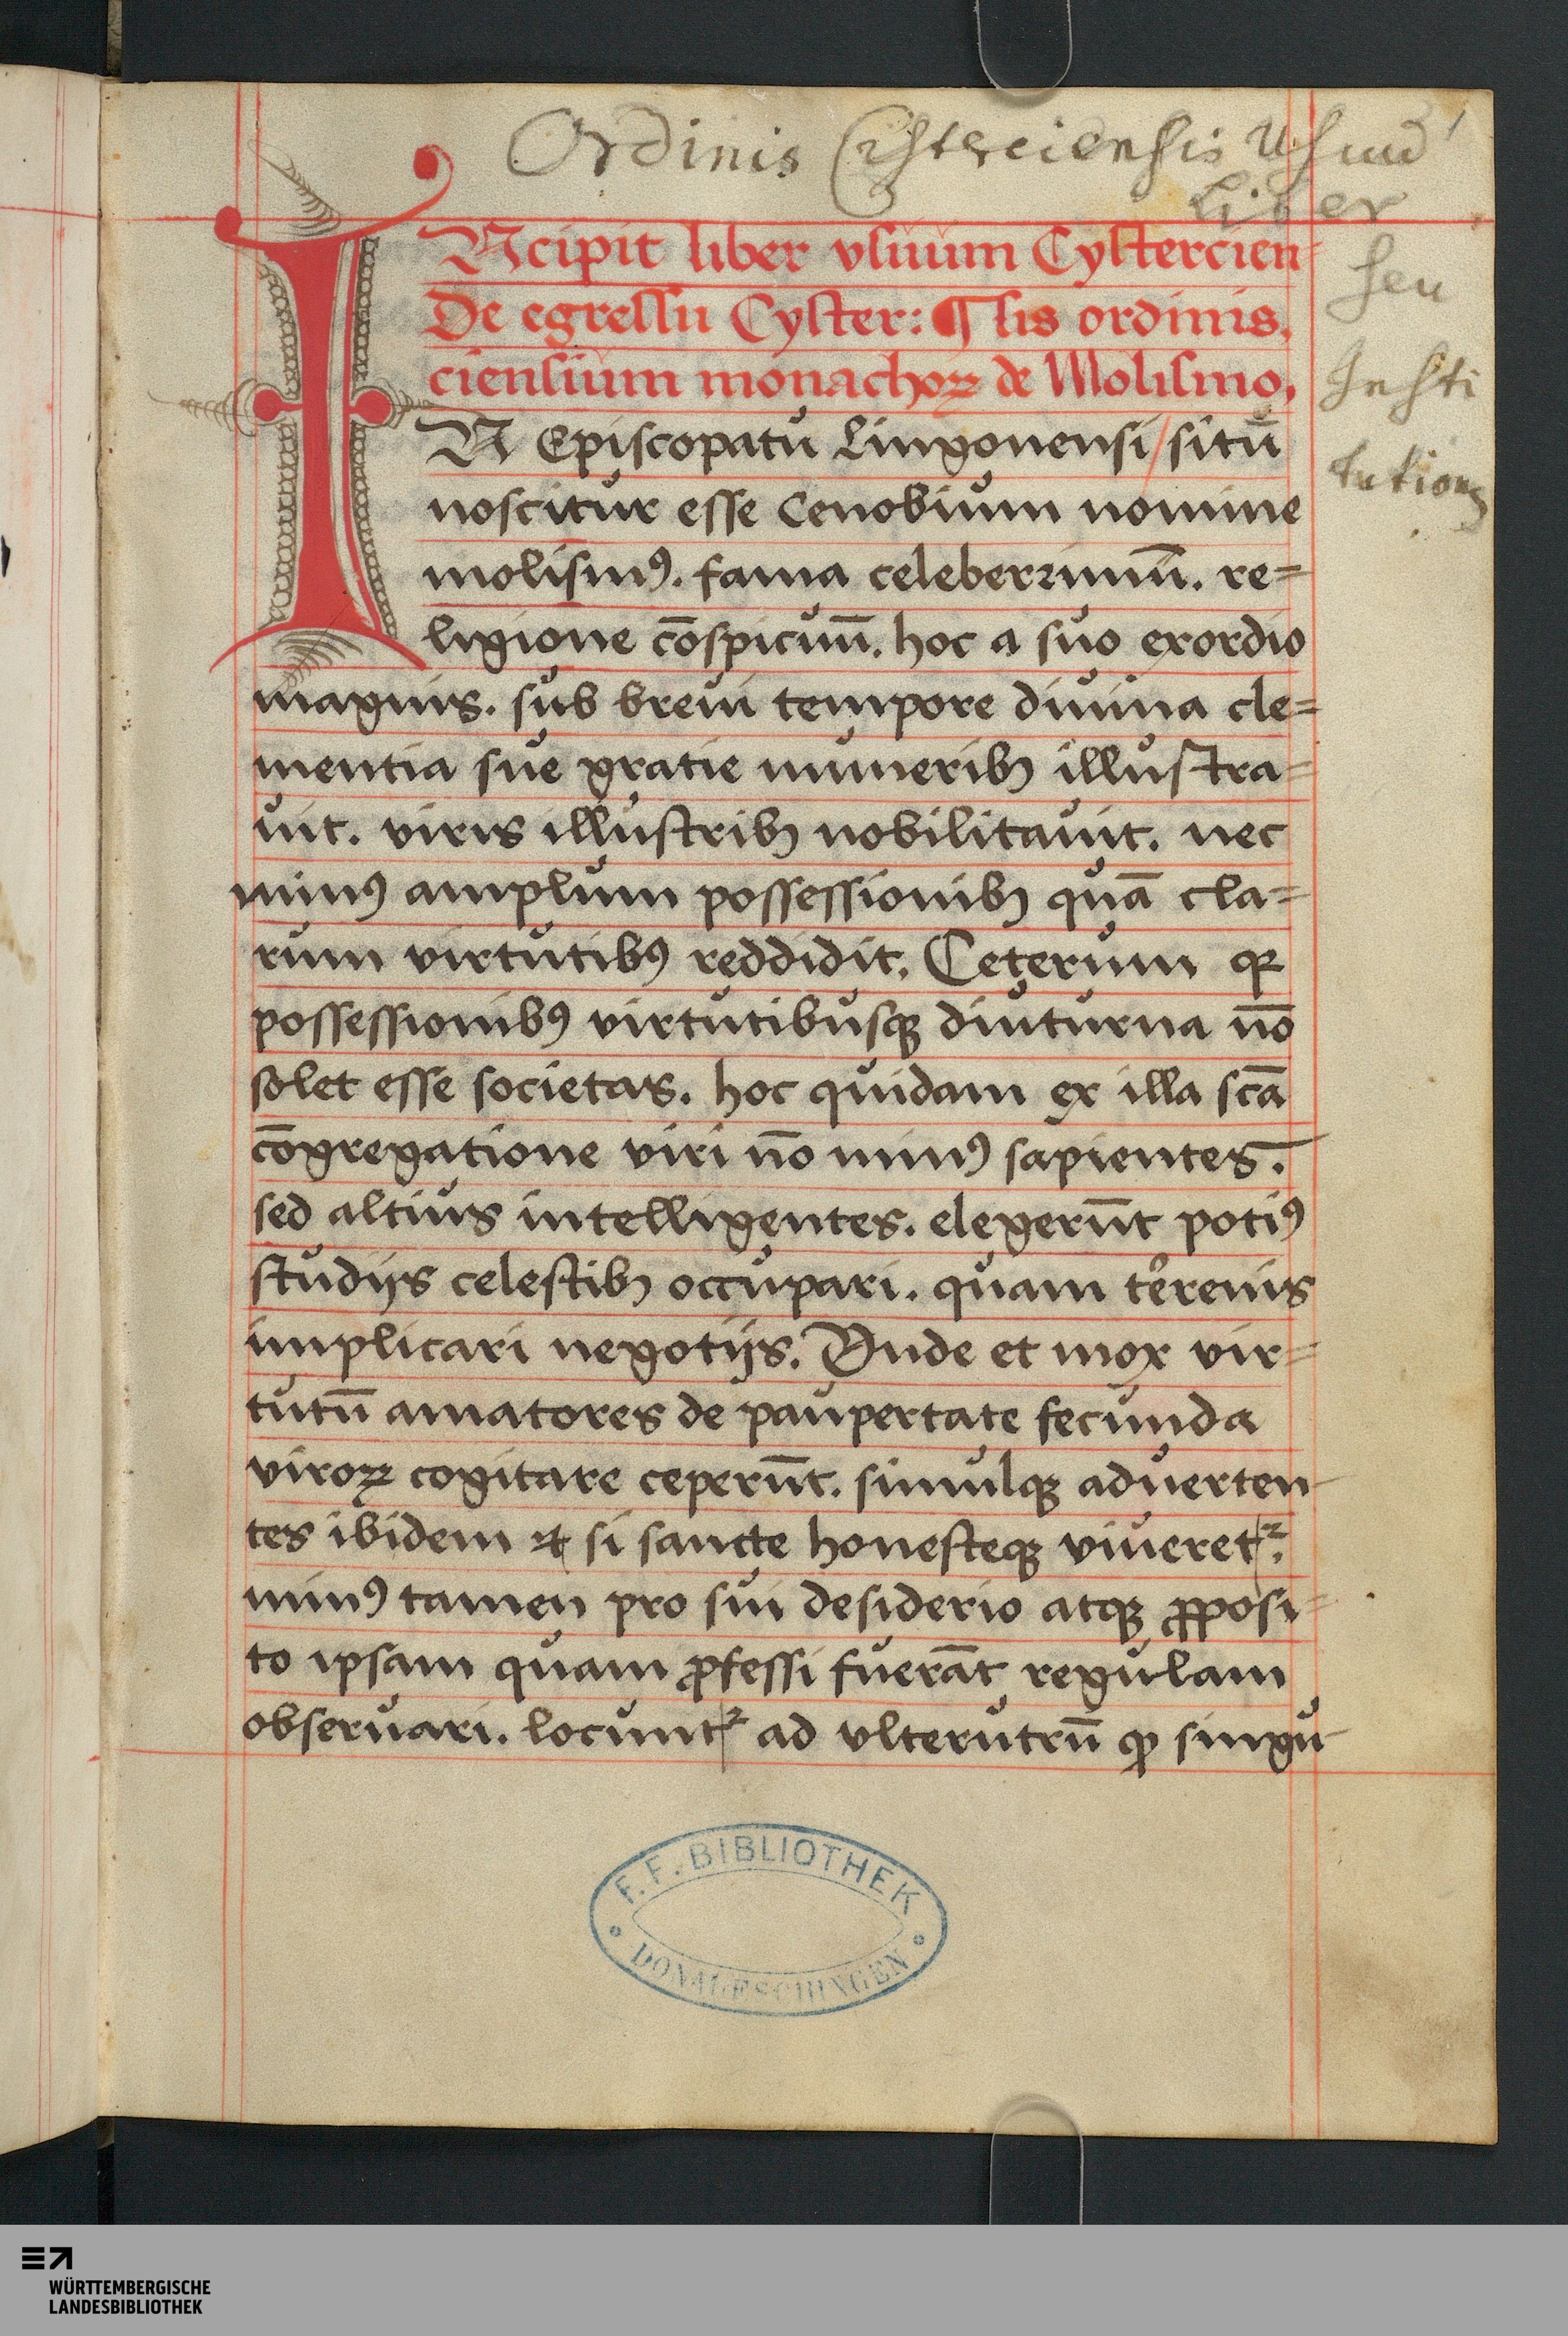 Ordinis Cisterciensis Usuum
liber
seu
Insti
tutiones
1
INcipit liber vsuum Cystercien-
De egressu Cyster: ¶ sis ordinis.
ciensium monachoꝝ de Molismo.
IN Episcopatu Lingonensi / sitū
noscitur esse Cenobium nomine
molismꝰ. fama celeberrimuū. re=
ligione cōspicuū. hoc a suo exordio
magnis. sub breui tempore diuina cle=
mentia sue gratie muneribꝫ illustra=
uit. viris illustribꝫ nobilitauit. nec
minꝰ amplum possessionibꝫ quā cla=
rum virtutibꝰ reddidit. Ceterum qꝛ
possessionibꝰ virtutibusqꝫ diuturna nō
solet esse societas. hoc quidam ex illa scā
cōgregatione viri nō minꝰ sapientes.
sed altius intelligentes. elegerūt potiꝰ
studijs celestibꝫ occupari. quam terrenis
implicari negotijs. Vnde et mox vir=
tutū amatores de paupertate fecunda
viroꝝ cogitare ceperūt. simulqꝫ aduerten-
tes ibidem ⁊ si sancte honesteqꝫ viueretᷣ.
minꝰ tamen pro sui desiderio atqꝫ ꝓposi=
to ipsam quam ꝓfessi fuerāt regulam
obseruari. locuntᷣ ad vlterutrū qꝫ singu-
F. F. BIBLIOTHEK
DONAUESCHINGEN
WÜRTTEMBERGISCHE
LANDESBIBLIOTHEK